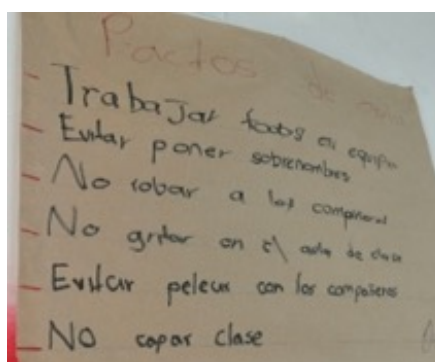 Pactos de aula
- Trabajar todos en equipo
- Evitar poner sobrenombres
- No robar a los compañeros
- No gritar en el aula de clase
- Evitar pelear con los compañeros
- NO capar clase